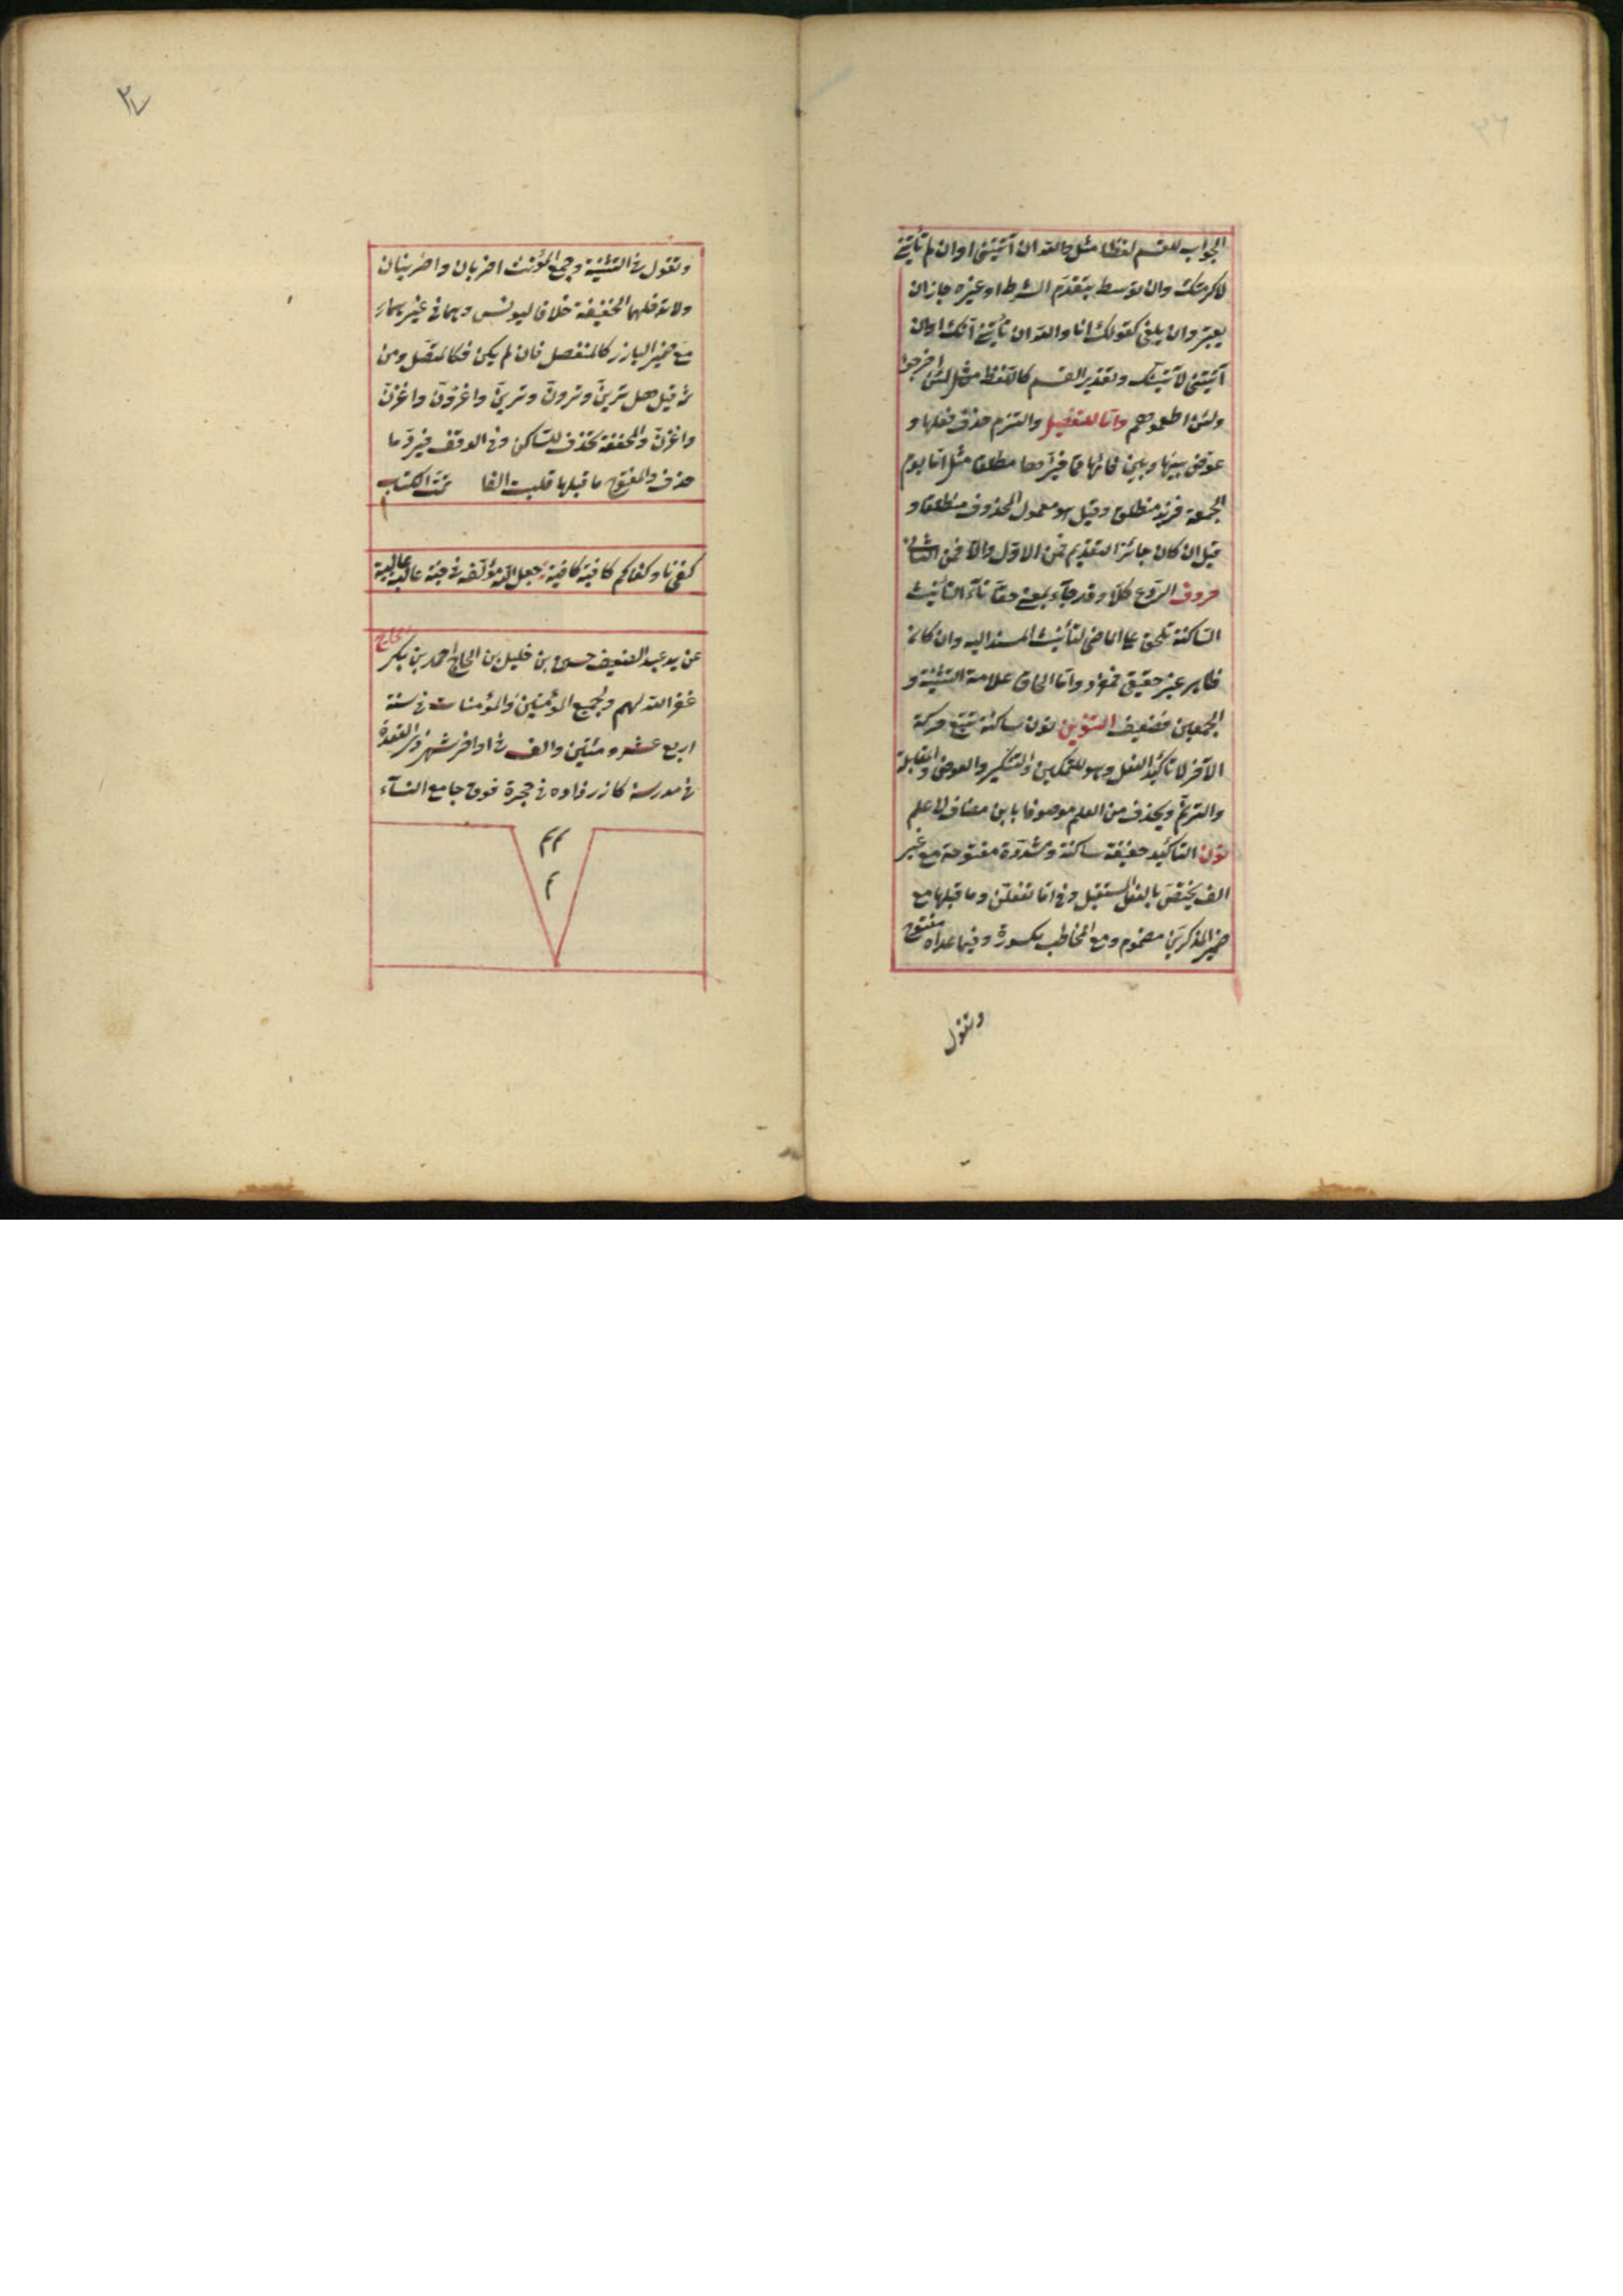 ٣٦
الجواب للقسم لفظا مثل والله ان آتيتنى او ان لم تأتنى
لاكرمتك وان توسط بتقدم الشرط او غيره جاز ان
يعتبر وان يلغى كقولك انا والله ان تأتنى آتك او ان
آتيتنى لآتينك وتقدير القسم كاللفظ مثل لئن اخرجوا
ولئن اطعتموهم واما للتفصيل والتزم حذف فعلها و
عوض بينها وبين فائها مما فى حيزها مطلقا مثل اما يوم
الجمعة فزيد منطلق وقيل هو معمول المحذوف مطلقا و
قيل ان كان جائز التقديم فمن الاول والا فمن الثانى
حروف الردع كلا وقد جاء بمعنى حقا تاء التأنيث
الساكنة تلحق الماضى لتأنيث المسند اليه وان كان
ظاهر غير حقيقى فمخير واما الحاق علامة التثنية و
الجمعين فضعيف التنوين نون ساكنة تتبع حركة
الآخر لا تأكيد الفعل وهو للتمكين والتنكير والعوض والمقابلة
والترنم ويحذف من العلم موصوفا بابن مضاف الى علم
نون التاكيد خفيفة ساكنة ومشددة مفتوحة مع غير
الف يختص بالفعل المستقبل وفى اما تفعلن وما قبلها مع
ضمير المذكرين مضموم ومع المخاطب مكسورة وفيما عداه مفتوح
وتقول
وتقول فى التثنية وجمع المؤنث اضربان واضربنان
ولا تدخلهما الخفيفة خلافا ليونس وهما فى غيرهما
مع ضمير البارز كالمنفصل فان لم يكن فكالمتصل ومن
ثم قيل هل ترين وترون وترين واغزون واغزن
واغزن والمخففة تحذف للساكن وفى الوقف فيرد ما
حذف والمفتوح ما قبلها قلبت الفا تمت الكتاب
كفى نا وكفاكم كافية كافية جعل الله مؤلفه فى جنة عالية عالية
عن يد عبد الضعيف حسن بن خليل بن الحاج احمد بن بكر الحاج
غفر الله لهم ولجميع المؤمنين والمؤمنات فى سنة
اربع عشر ومئتين والف فى اواخر شهر ذى القعدة
فى مدرسة كازر زاده فى حجرة فوق جامع النساء
م م
م